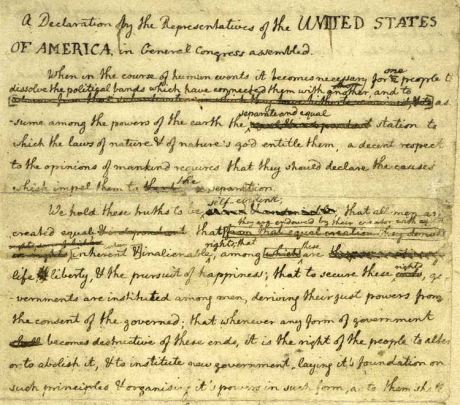 A Declaration by the Representatives of the UNITED STATES
OF AMERICA, in General Congress assembled.
When in the course of human events it becomes necessary for one people to
dissolve the political bands which have connected them with another, and to
as-
separate and equal
-sume among the powers of the earth the station to
which the laws of nature & of nature's god entitle them, a decent respect
to the opinions of mankind requires that they should declare the causes
which impel them to the separation.
self-evident;
We hold these truths to be that all men are
they are endowed by their creator with
created equal & independant that from that equal creation they derive
rights; that these
inherent & inalienable, among which are
rights
life, liberty, & the pursuit of happiness; that to secure these ends, go-
-vernments are instituted among men, deriving their just powers from
the consent of the governed; that whenever any form of government
becomes destructive of these ends, it is the right of the people to alter
or to abolish it, & to institute new government, laying it's foundation on
such principles & organising it's powers in such form, as to them sh